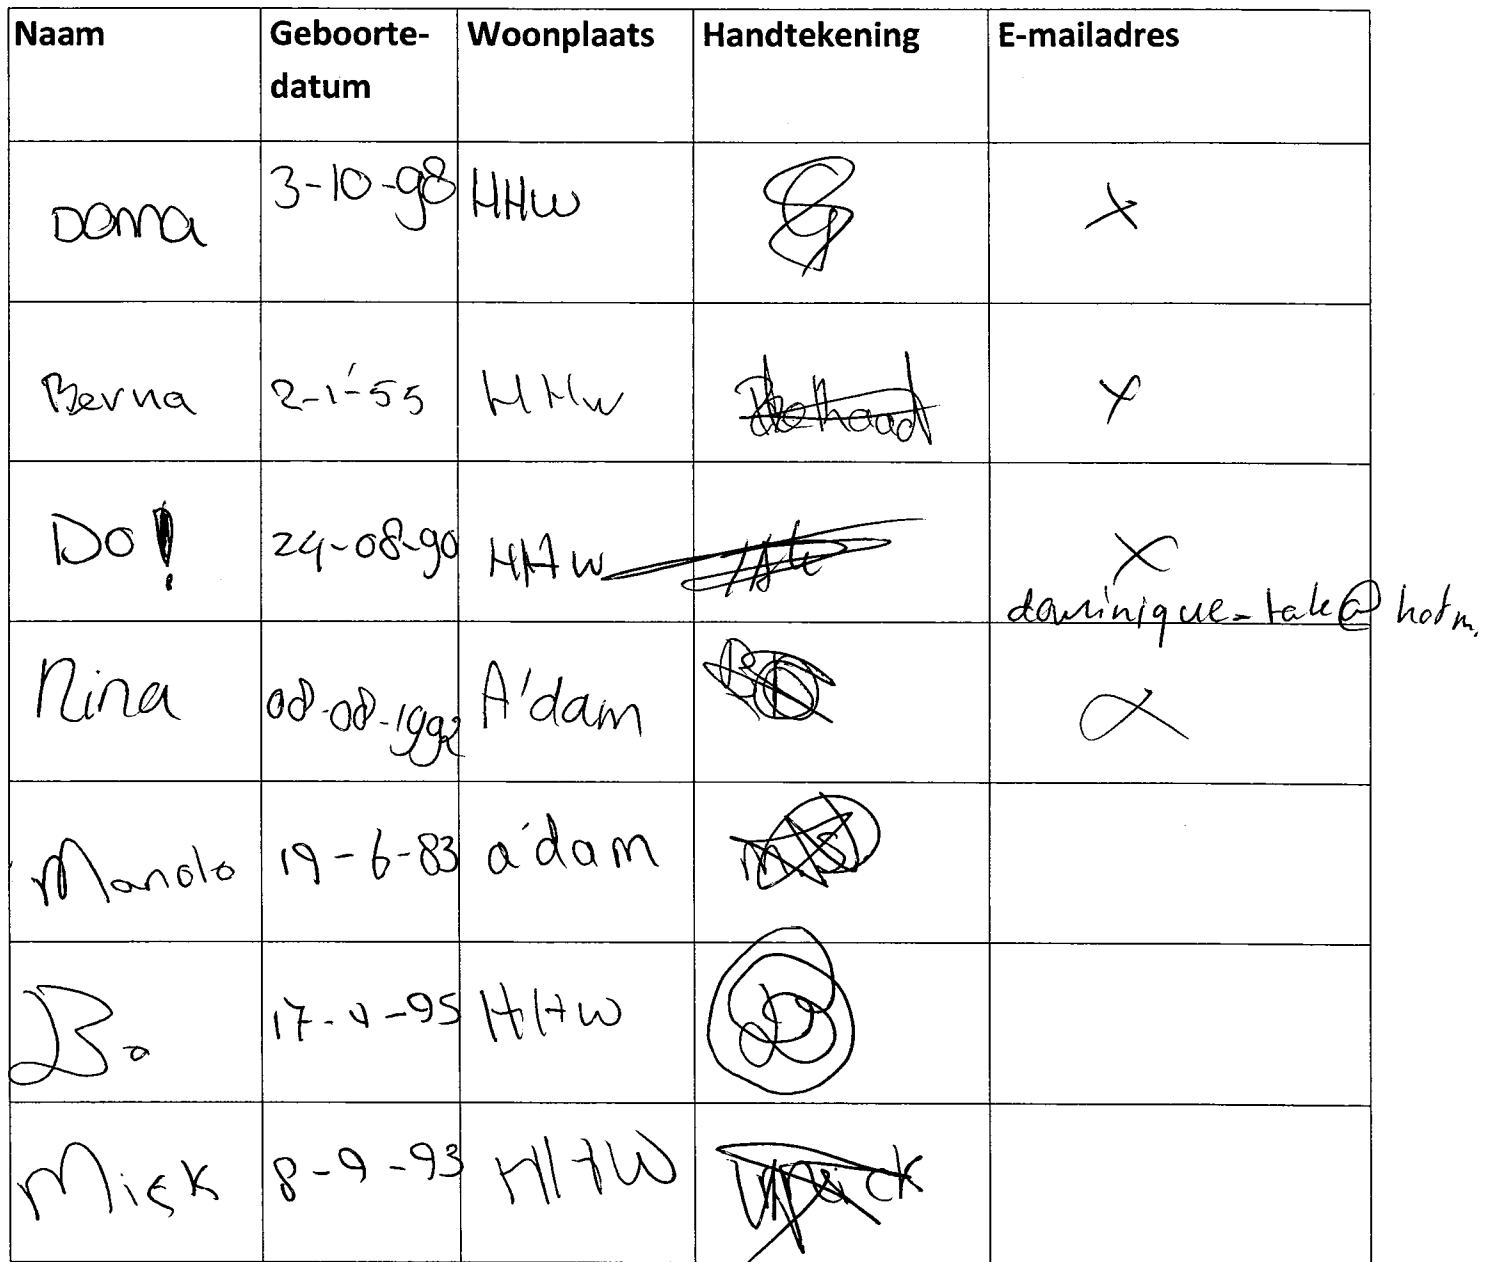 Naam Geboorte- Woonplaats Handtekening E-mailadres
datum
Doma 3-10-98 HHW x
Berna 2-1-55 HHw x
Do! 24-08-90 HHW x
dominique-tak@hotm.
Nina 08-08-1992 A'dam x
Manolo 19-6-83 a'dam
Bo 17-4-95 HHW
Mick 8-9-93 HHW Mick